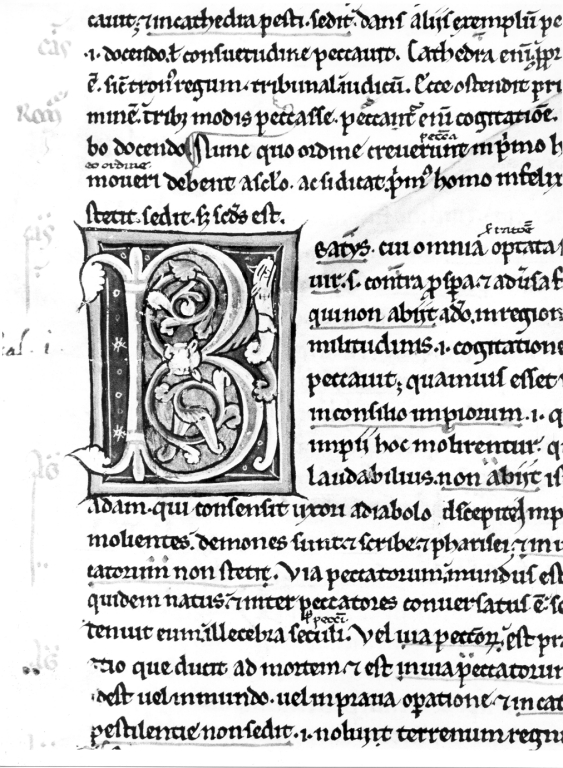 cauit; ⁊ in cathedra pesti. sedit. dans aliis exemplū pe
.i. docendo. ł consuetudine peccauit. Cathedra eni
ē. sic tron' regum. tribunal iudicū. Ecce ostendit pri
mine. trib; modis peccasse. peccant eni cogitatiōe.
pecca
bo docendo Nunc quo ordine creuerunt in p̄mo h
eo ordine
moueri debent a sclō. ac si dicat. p̄m' homo infelix
stetit. sedit. s; scd's est.
B
eatus. cui omnia optata
uir. s. contra pspa. ⁊ aduisa
qui non abiit a dō. in region
militudinis. i. cogitatione
peccauit; quamuis esset
in consilio impiorum. i. q
impii hoc molirentur. q
laudabilius. non abiit i
adam. qui consensit uxori a diabolo
molientes. demones sunt. ⁊ scribe. ⁊ pharisei. ⁊ in u
catorum non stetit. Via peccatorum. mundus est
quidem natus. ⁊ inter peccatores conuersatus ē.
tenuit eum illecebra seculi. Vel uia peccor. est pra
tio que ducit ad mortem. ⁊ est in uia peccatorum
.i. dest uel in mundo. uel in praua opatione. ⁊ in cat
pestilentie non sedit. i. noluit terrenum regnu